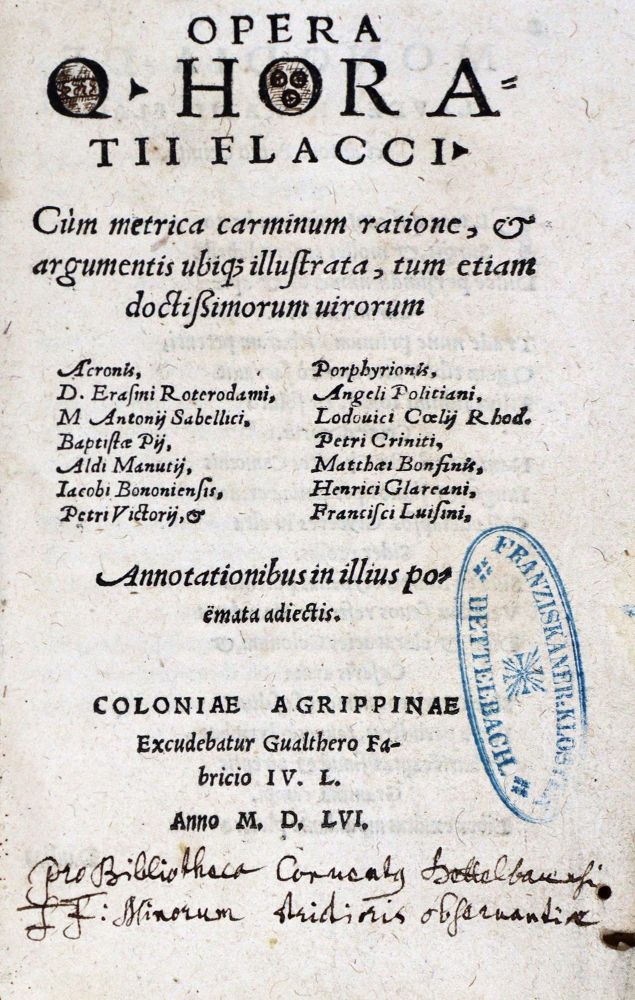 OPERA
Q HORA=
TII FLACCI
Cùm metrica carminum ratione, &
argumentis ubiq; illustrata, tum etiam
doctißimorum uirorum
Acronis,
D. Erasmi Roterodami,
M Antonij Sabellici,
Baptistæ Pij,
Aldi Manutij,
Iacobi Bononiensis,
Petri Victorij, &
Porphyrionis,
Angeli Politiani,
Lodouici Cœlij Rhod.
Petri Criniti,
Matthæi Bonfinis,
Henrici Glareani,
Francisci Luisini,
Annotationibus in illius po-
ëmata adiectis.
COLONIAE AGRIPPINAE
Excudebatur Gualthero Fa-
bricio IV. L.
Anno M. D. LVI.
FRANZISKANER-KLOSTER
DETTELBACH.
pro Bibliotheca Conventus Dettelbacensi
FF: Minorum strictioris observantiæ